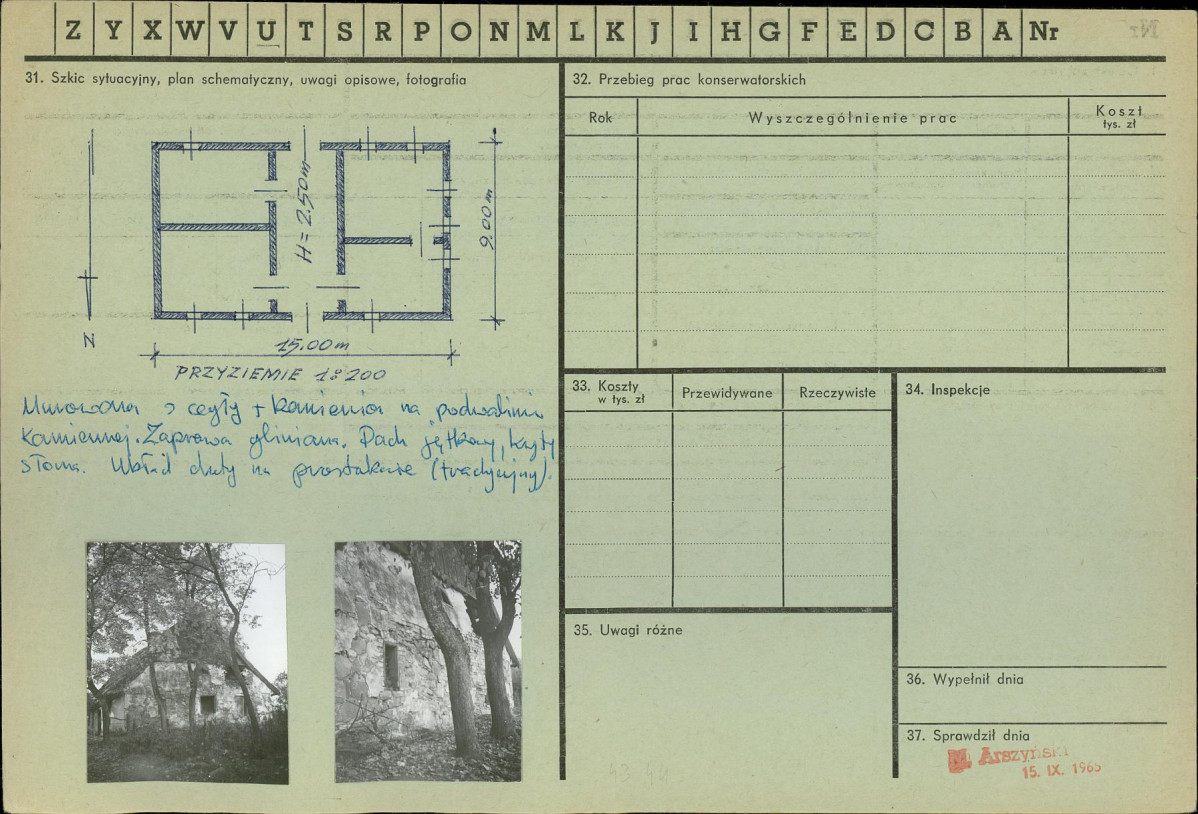 Z Y X W V U T S R P O N M L K J I H G F E D C B A Nr
31. Szkic sytuacyjny, plan schematyczny, uwagi opisowe, fotografia
H = 2.50m
9.00m
N
15.00m
PRZYZIEMIE 1:200
Murowana z cegły + kamienia na podwalinie
kamiennej. Zaprawa gliniana. Dach jętkowy, kryty
słomą. Układ na (tradycyjny).
32. Przebieg prac konserwatorskich
Rok
Wyszczególnienie prac
Koszt
tys. zł
33. Koszty
w tys. zł
Przewidywane
Rzeczywiste
34. Inspekcje
35. Uwagi różne
36. Wypełnił dnia
37. Sprawdził dnia
M. Arszyński
15. IX. 1965